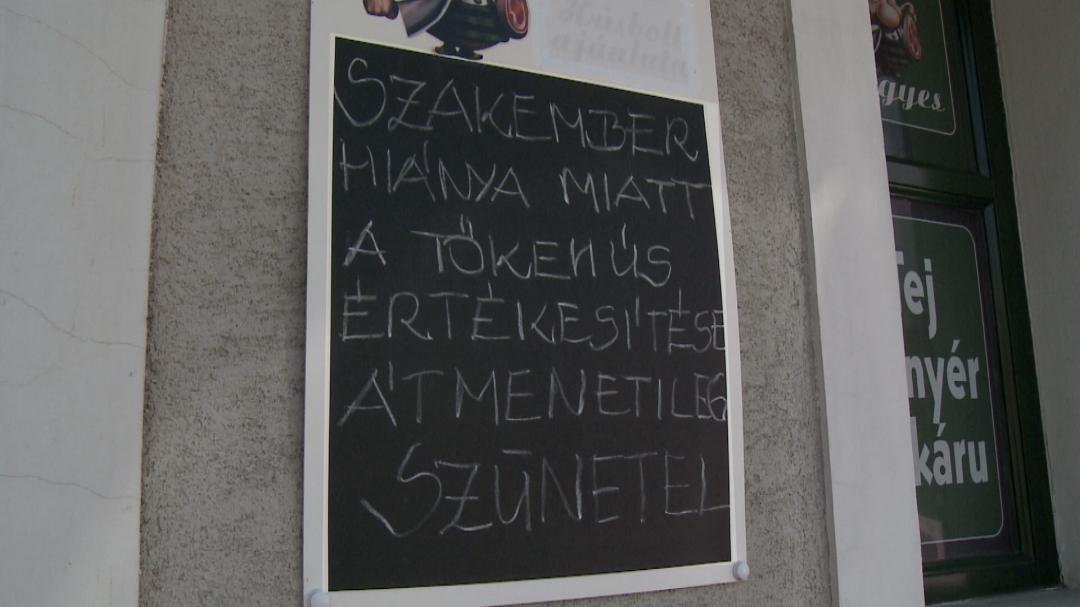 Húsbolt
ajánlata
SZAKEMBER
HIÁNYA MIATT
A TŐKEHÚS
ÉRTÉKESÍTÉSE
ÁTMENETILEG
SZÜNETEL
gyes
Tej
nyér
káru